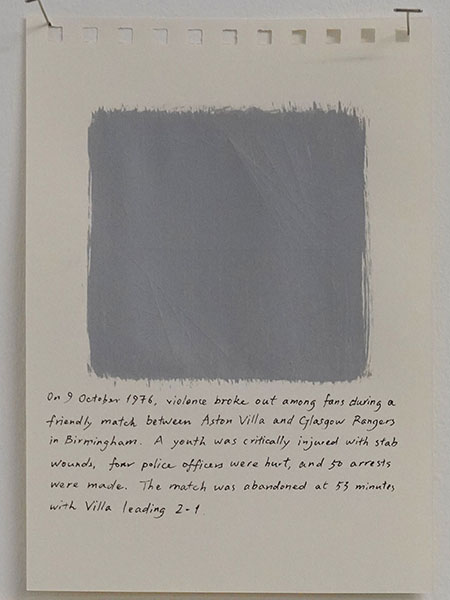 On 9 October 1976, violence broke out among fans during a
friendly match between Aston Villa and Glasgow Rangers
in Birmingham. A youth was critically injured with stab
wounds, four police officers were hurt, and 50 arrests
were made. The match was abandoned at 53 minutes
with Villa leading 2-1